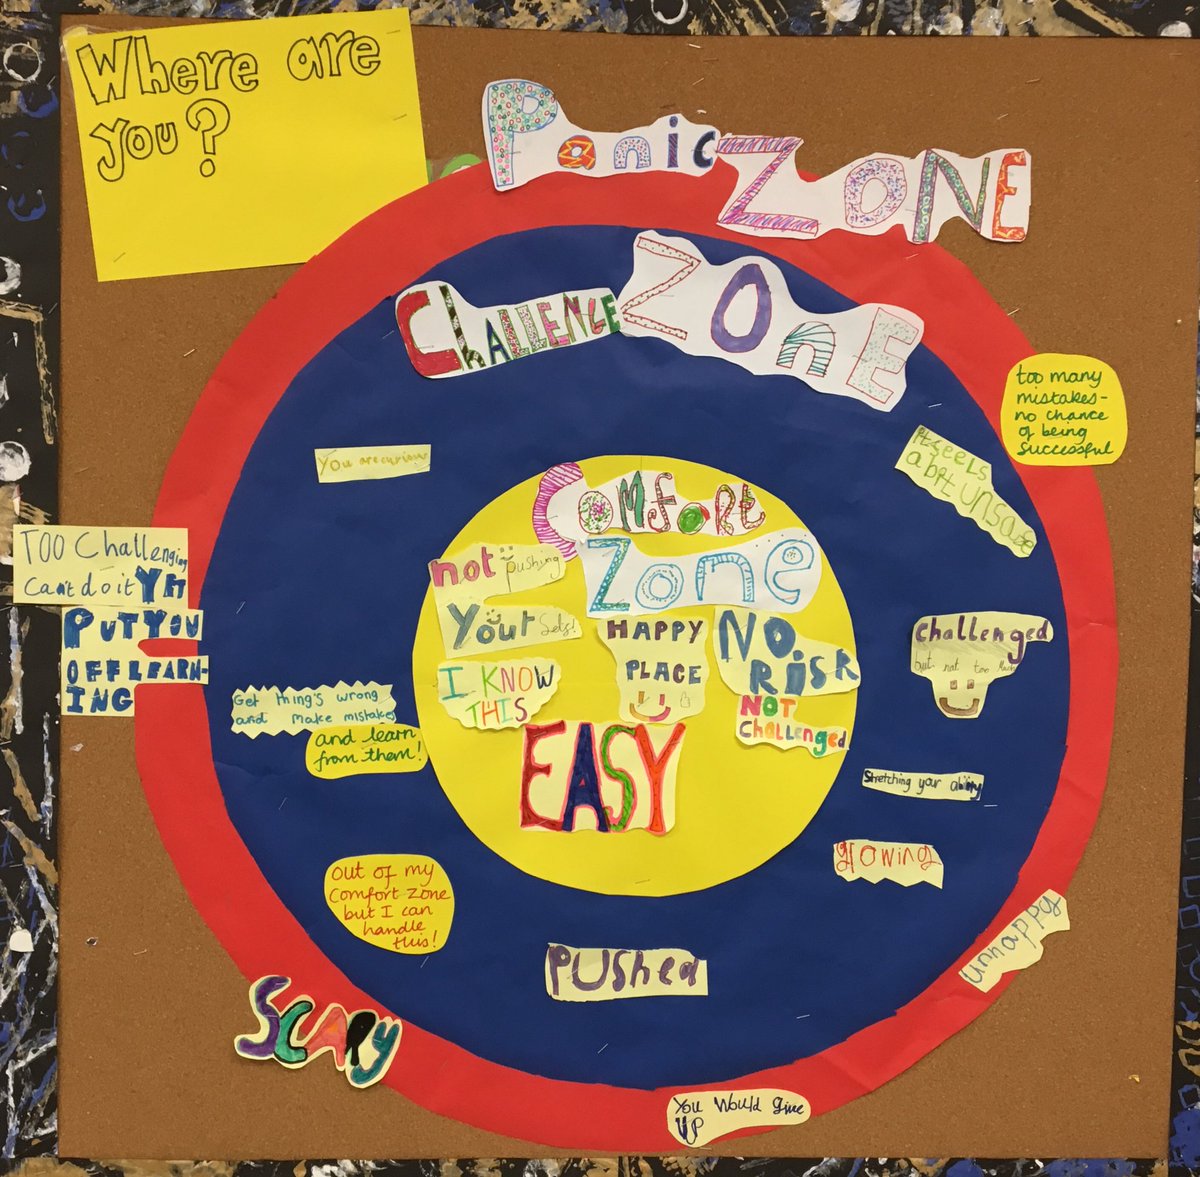 Where are
you?
Panic ZONE
ChALLENGE ZOnE
too many
mistakes-
no chance
of being
successful
It feels
a bit unsafe
You are curious
Comfort
Zone
not pushing
Your
HAPPY
PLACE
NO
RiSK
I KNOW
THIS
NOT
Challenged
EASY
TOO Challenging
Can't do it Yet
PUT YOU
OFF LEARN-
ING
Challenged
but not too Much
Get thing's wrong
and make mistakes
and learn
from them!
Stretching your ability
growing
out of my
comfort zone
but I can
handle
this!
PUShed
unhappy
SCARY
You Would give
UP